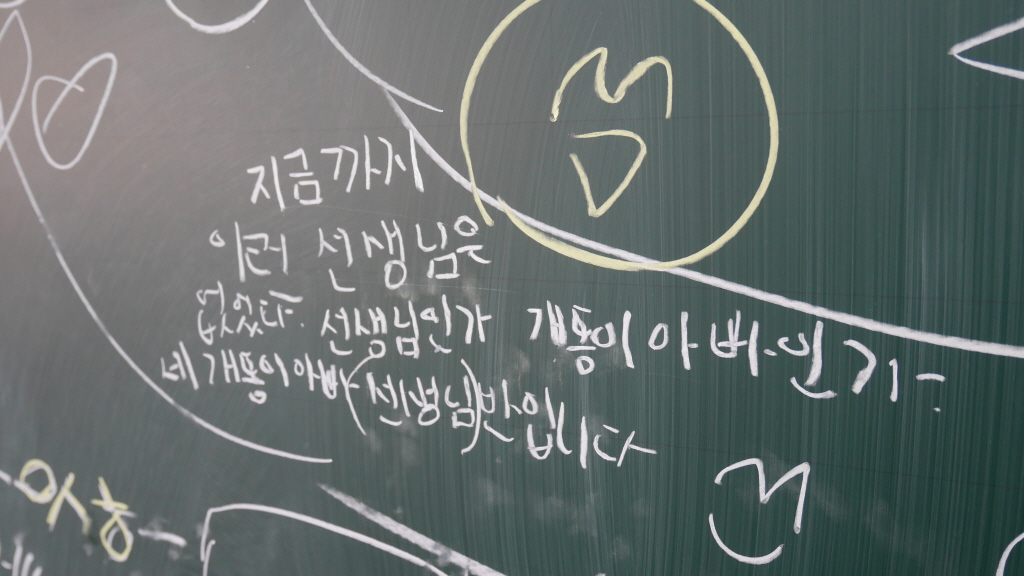 지금까지
이런 선생님은
없었다. 선생님인가 개똥이아빠인가
네 개똥이아빠(선생님)반입니다